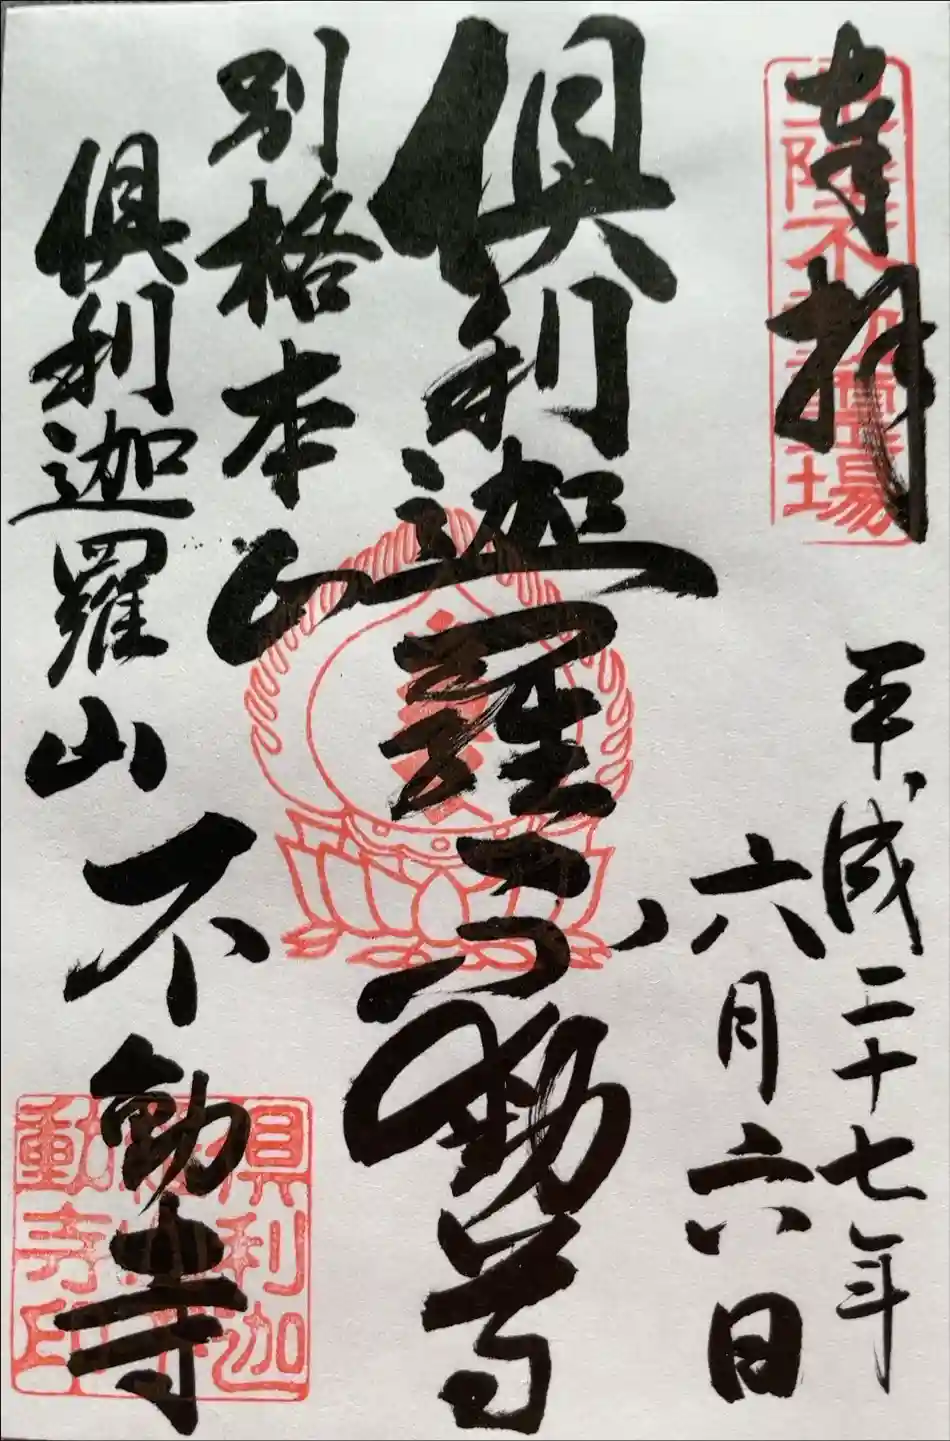 奉拝
北陸不動霊場
平成二十七年
六月六日
倶利迦羅不動尊
別格本山
倶利迦羅山不動寺